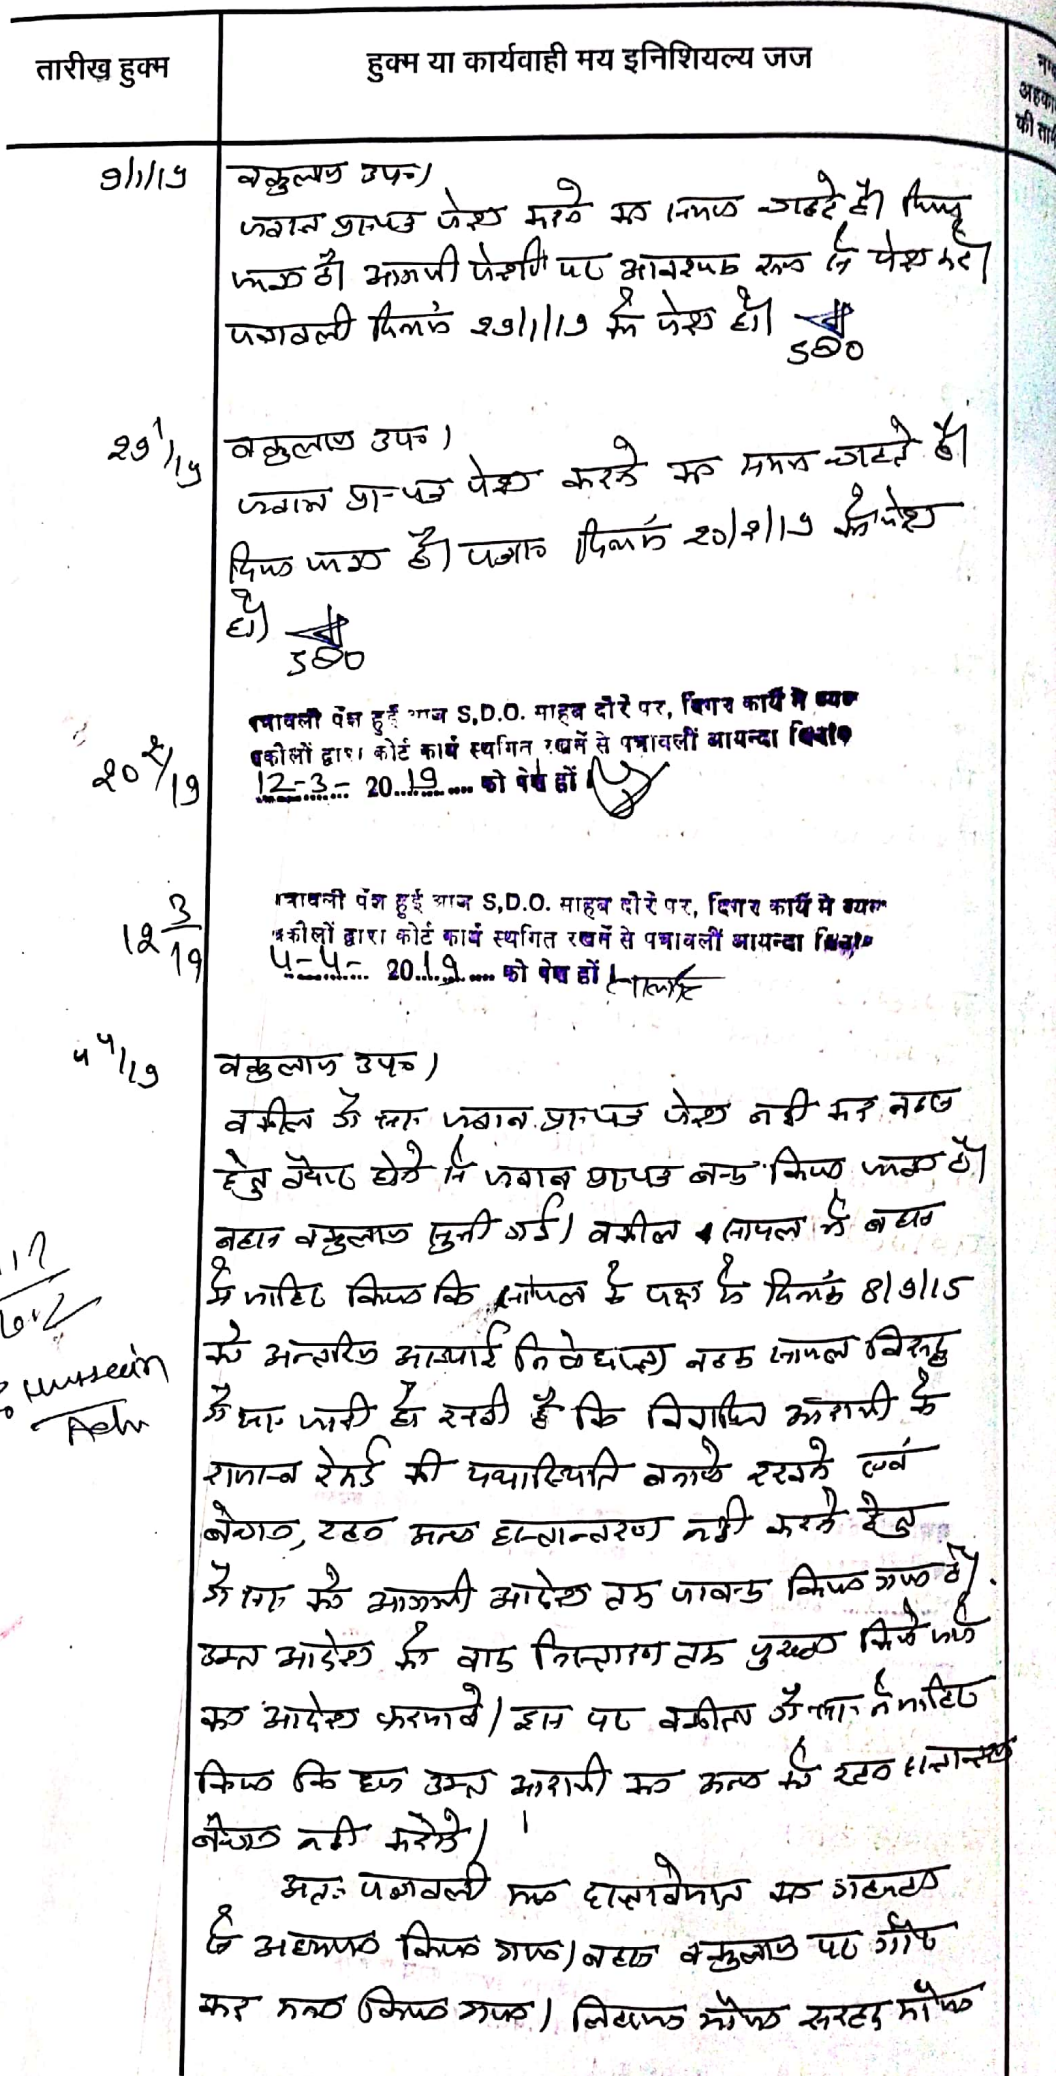 तारीख हुक्म
हुक्म या कार्यवाही मय इनिशियल्य जज
अहका
की ता
9/1/19
वकुलाय उप०।
जवाब प्रा-पत्र पेश करने का समय चाहते है। दिया
जाता है। आगामी पेशी पर आवश्यक रूप से पेश करें।
पत्रावली दिनांक 29/1/19 को पेश हो।
SDO
29 1/19
वकुलाय उप०।
जवाब प्रा-पत्र पेश करने का समय चाहते है।
दिया जाता है। पत्रा० दिनांक 20/2/19 को पेश
हो।
SDO
20 2/19
पत्रावली पेश हुई आज S.D.O. साहब दौरे पर, दिगर कार्य मे व्यस्त
वकीलों द्वारा कोर्ट कार्य स्थगित रखने से पत्रावली आयन्दा दिनांक
12-3- 2019 को पेश हों
12 3/19
पत्रावली पेश हुई आज S.D.O. साहब दौरे पर, दिगर कार्य मे व्यस्त
वकीलों द्वारा कोर्ट कार्य स्थगित रखने से पत्रावली आयन्दा दिनांक
4-4- 2019 को पेश हों
4 4/19
वकुलाय उप०।
वकील गै.सा. जवाब प्रा-पत्र पेश नही कर बहस
हेतु तैयार होने से जवाब प्रा-पत्र बन्द किया जाता है।
बहस वकुलाय सुनी गई। वकील सायल ने बहस
मे जाहिर किया कि सायल के पक्ष मे दिनांक 8/9/15
को अन्तरिम अस्थाई निषेधाज्ञा बहक सायल विरुद्ध
गै.सा. जारी हो रखी है कि विवादित आराजी के
राजस्व रेकर्ड की यथास्थिति बनाये रखने एवं
बेचान, रहन अन्य हस्तान्तरण नही करने हेतु
गै.सा. को आगामी आदेश तक पाबन्द किया गया है।
उक्त आदेश को वाद निस्तारण तक पुख्ता किये जाने
का आदेश फरमावे। इस पर वकील गै.सा. ने जाहिर
किया कि हम उक्त आराजी का अन्य को रहन हस्तान्तरण
बेचान नही करेंगे।
अतः पत्रावली मय दस्तावेजात का गहनता
से अध्ययन किया गया। बहस वकुलाय पर गौर
कर मनन किया गया।
Hussain
Adv